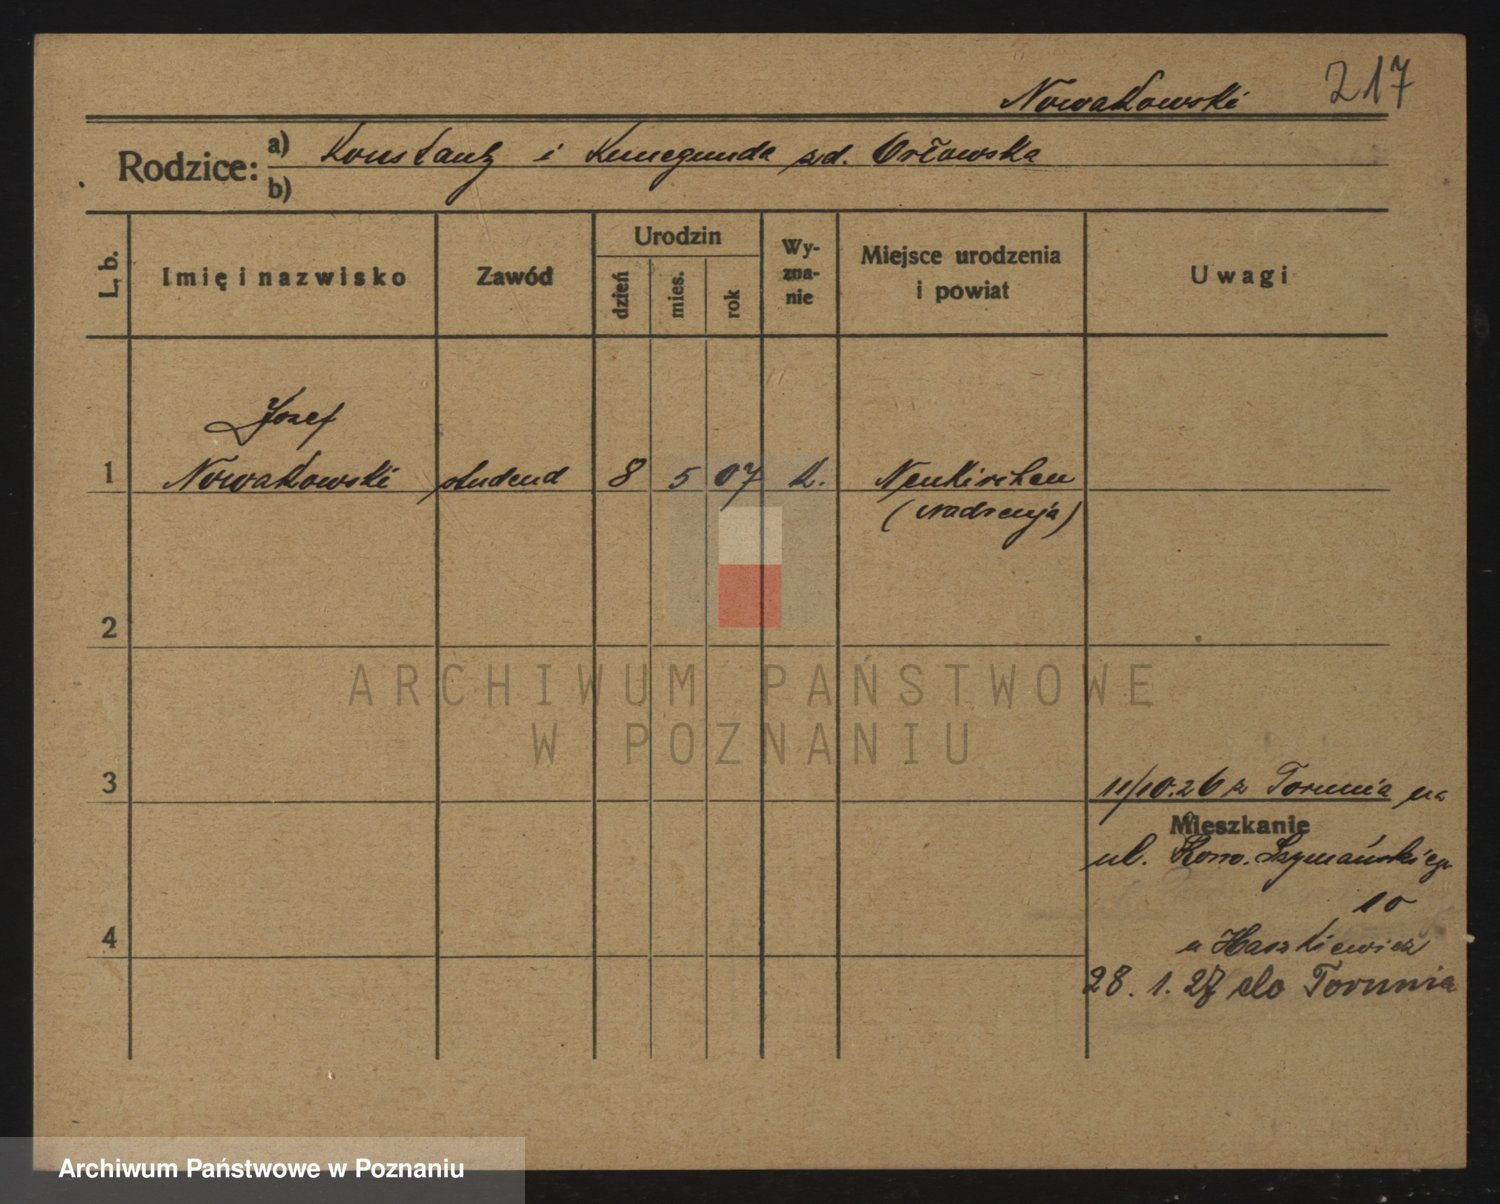 Nowakowski 217
Rodzice: a) Konstanty i Kunegunda zd. Orłowska
b)
L. b. Imię i nazwisko Zawód Urodzin dzień mies. rok Wy-zna-nie Miejsce urodzenia i powiat Uwagi
Józef
1 Nowakowski student 8 5 07 k. Neukirchen
(Nadrenja)
2
ARCHIWUM PAŃSTWOWE
W POZNANIU
3 11/10.26 z Torunia na
Mieszkanie
ul. Szymańskiego
10
4 u Haszkiewicz
28. 1. 27 do Torunia
Archiwum Państwowe w Poznaniu